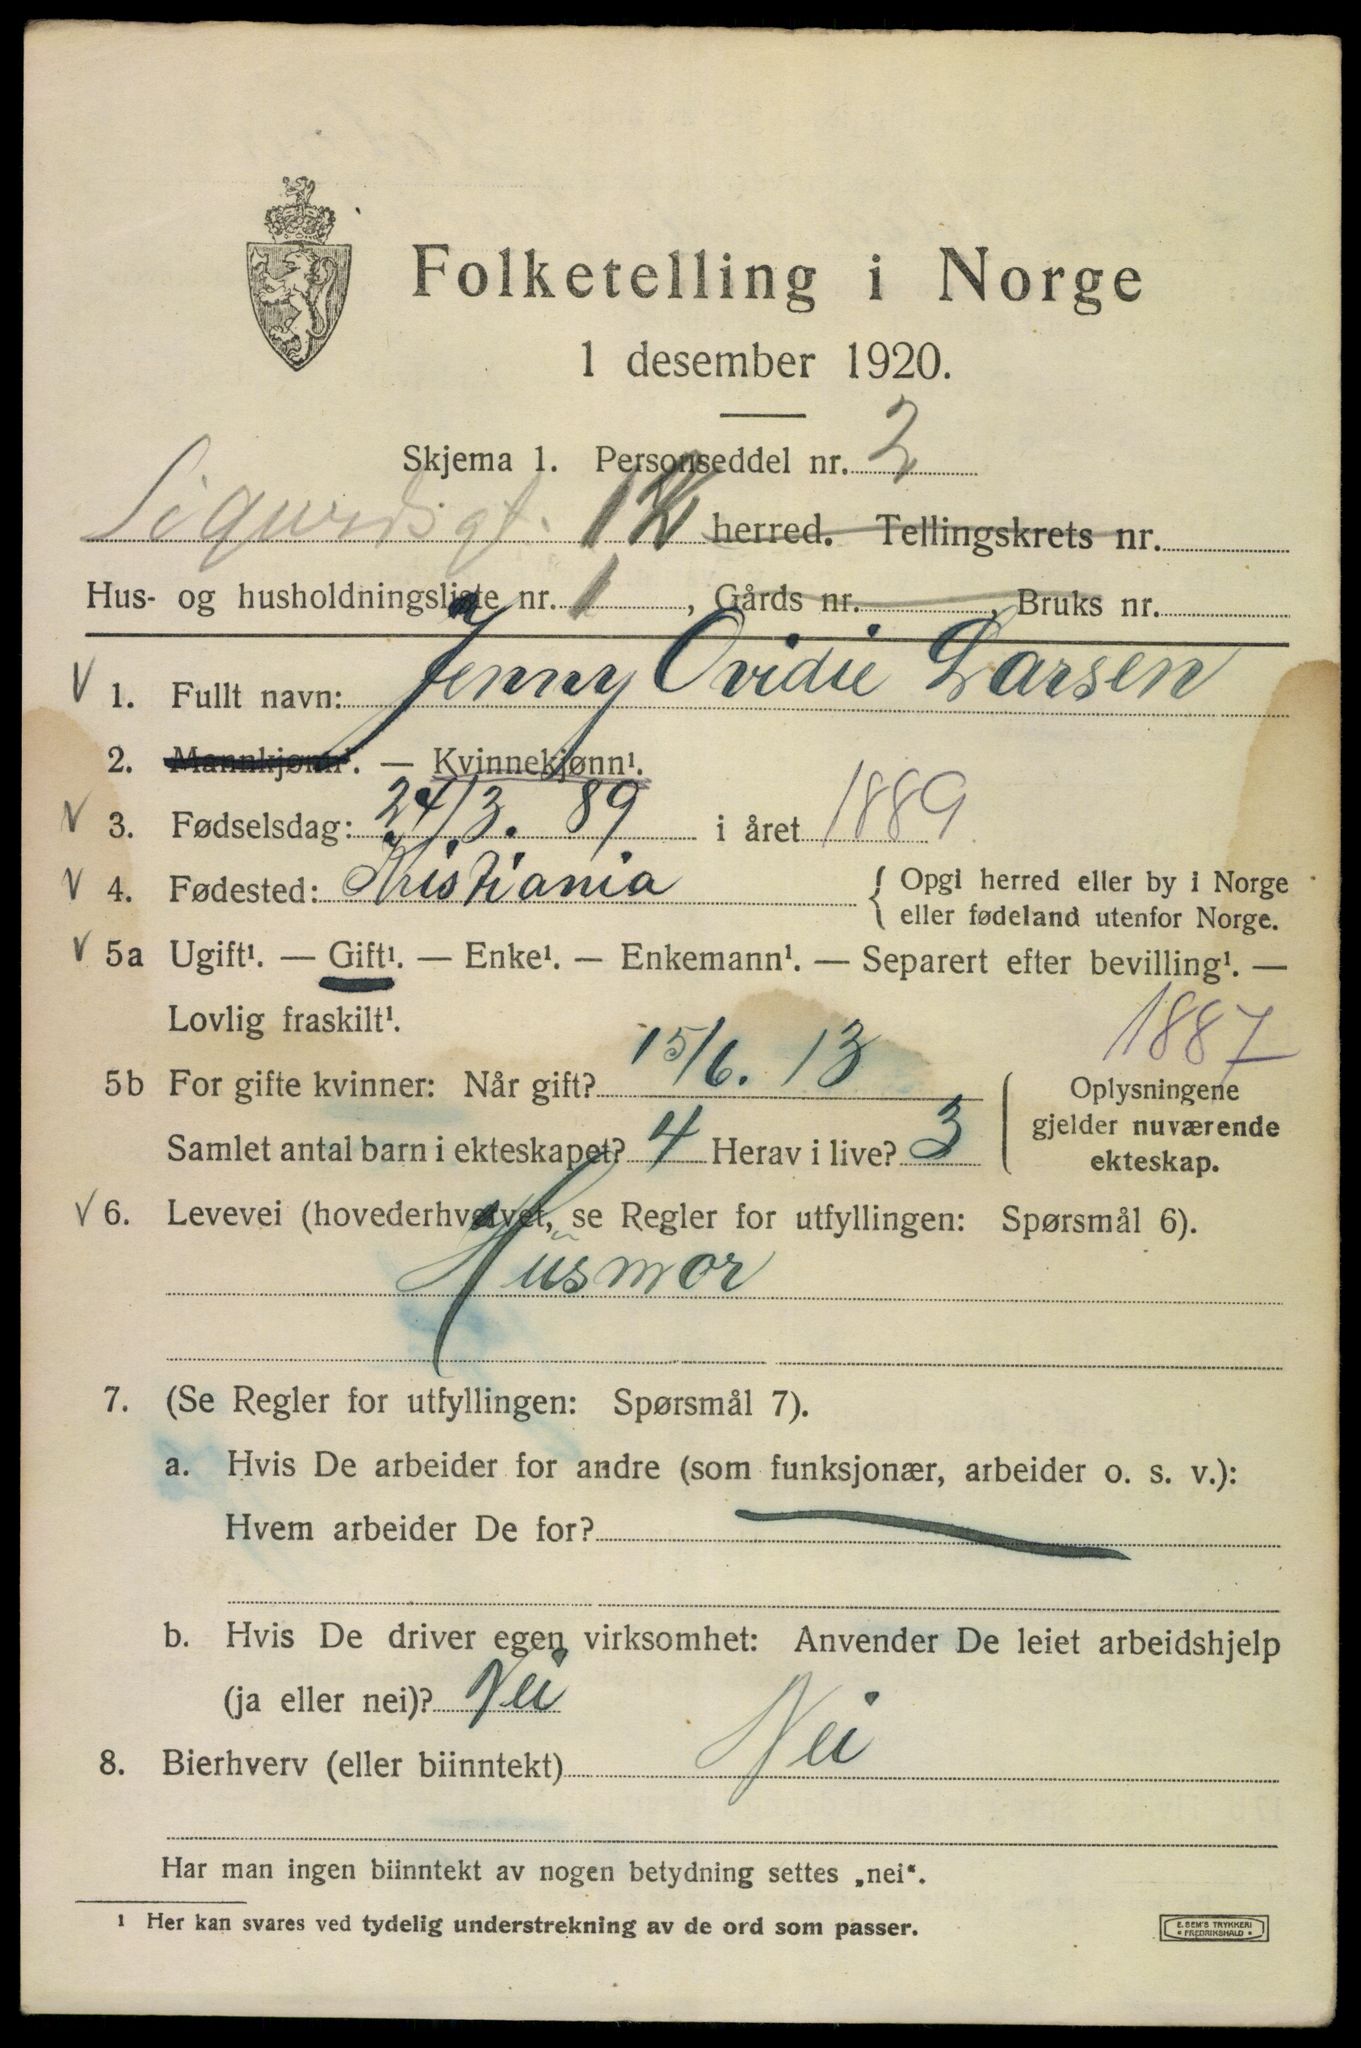 Folketelling i Norge
1 desember 1920.
Skjema 1. Personseddel nr. 2
Sigurdsgt. herred. Tellingskrets nr.
Hus- og husholdningsliste nr. 1, Gårds nr. , Bruks nr.
1. Fullt navn: Jenny Ovidie Larsen
2. Mannkjønn¹. — Kvinnekjønn¹.
3. Fødselsdag: 24/3. 89 i året 1889
4. Fødested: Kristiania { Opgi herred eller by i Norge
eller fødeland utenfor Norge.
5a Ugift¹. — Gift¹. — Enke¹. — Enkemann¹. — Separert efter bevilling¹. —
Lovlig fraskilt¹.
1887
5b For gifte kvinner: Når gift? 15/6. 13
Samlet antal barn i ekteskapet? 4 Herav i live? 3
Oplysningene
gjelder nuværende
ekteskap.
6. Levevei (hovederhvervet, se Regler for utfyllingen: Spørsmål 6).
Husmor
7. (Se Regler for utfyllingen: Spørsmål 7).
a. Hvis De arbeider for andre (som funksjonær, arbeider o. s. v.):
Hvem arbeider De for?
b. Hvis De driver egen virksomhet: Anvender De leiet arbeidshjelp
(ja eller nei)? Nei
8. Bierhverv (eller biinntekt) Nei
Har man ingen biinntekt av nogen betydning settes „nei“.
¹ Her kan svares ved tydelig understrekning av de ord som passer.
E. SEM'S TRYKKERI
• FREDRIKSHALD •